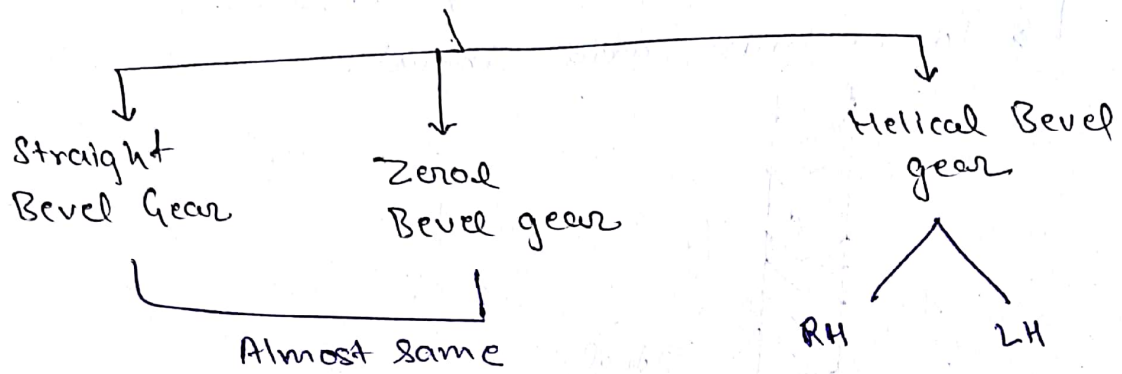 Straight
Bevel Gear
Zerol
Bevel gear
Helical Bevel
gear
Almost same
RH
LH